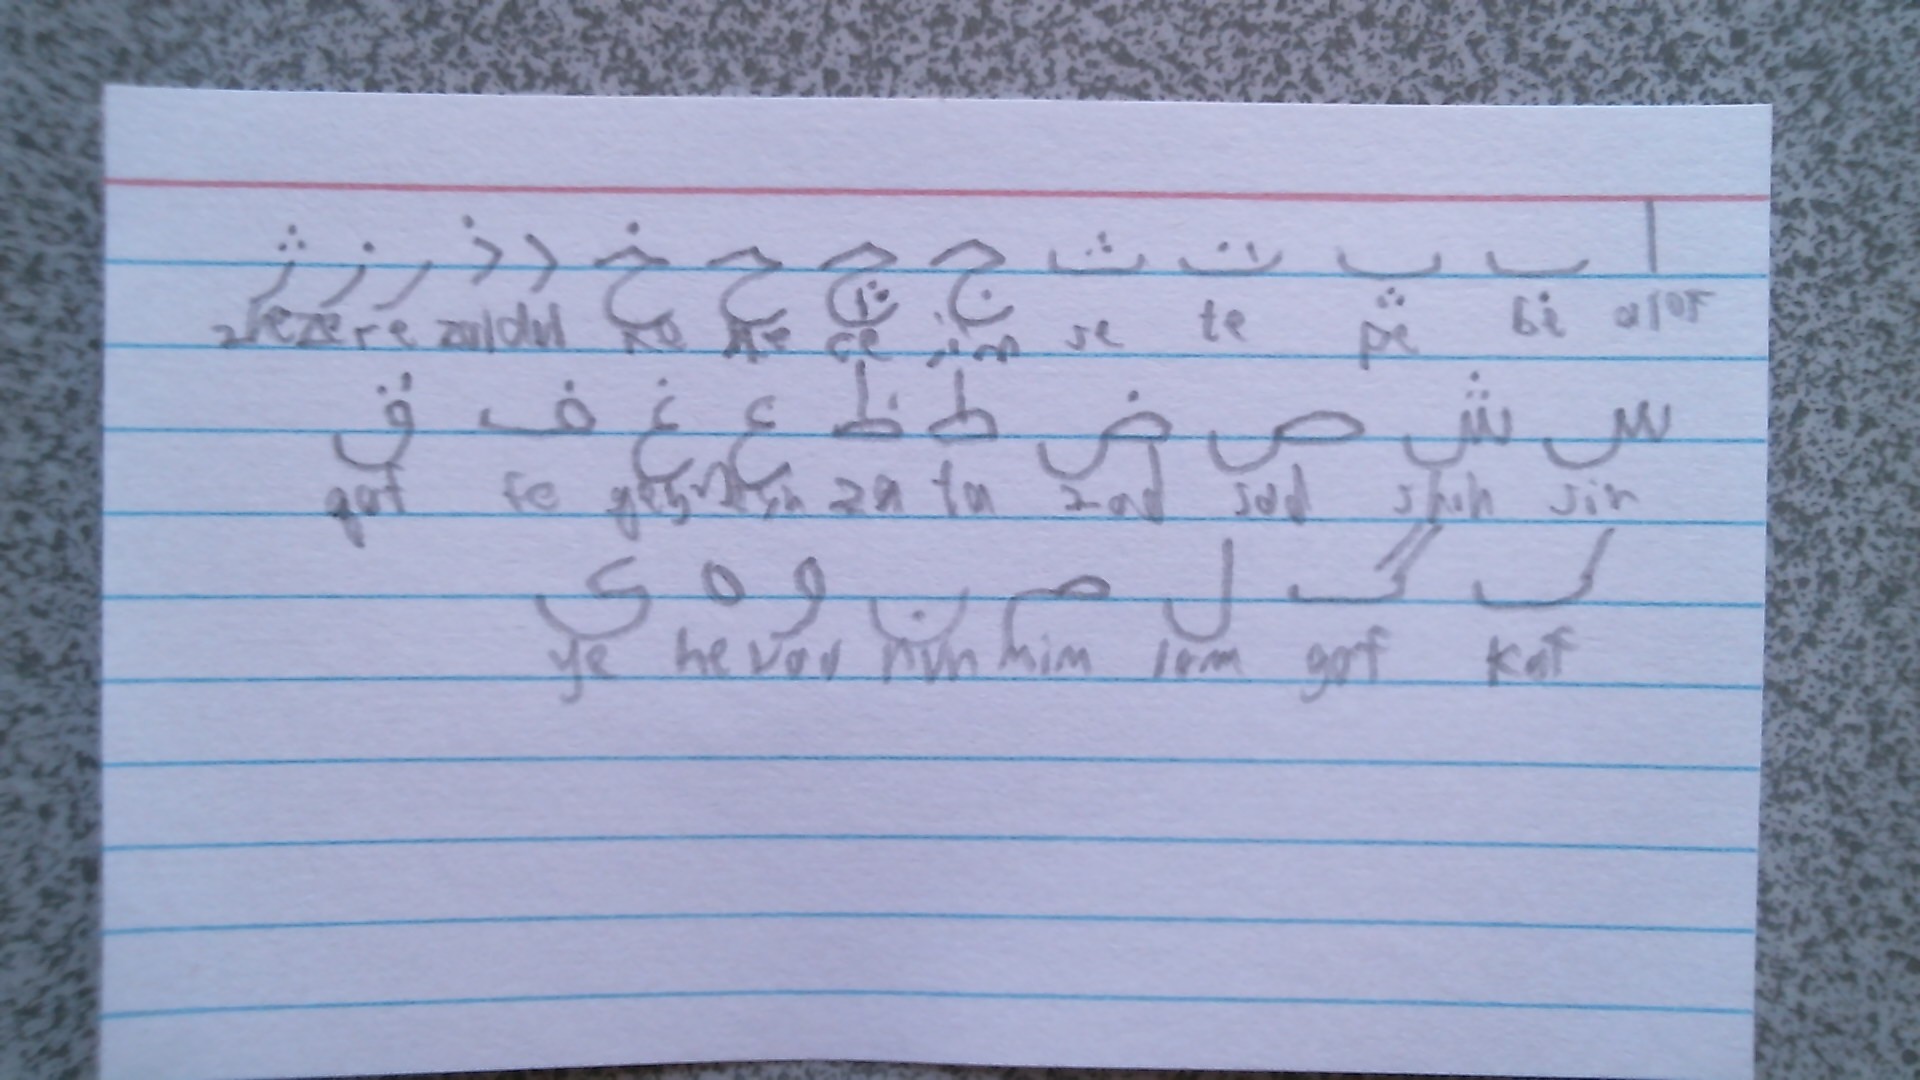 ا ب پ ت ث ج چ ح خ د ذ ر ز ژ
alof be pe te se jim ce he xe dal zal re ze zhe
س ش ص ض ط ظ ع غ ف ق
sin shin sad zad ta za fe qaf
ک گ ل م ن و ه ی
kaf gaf lam mim nun vav he ye